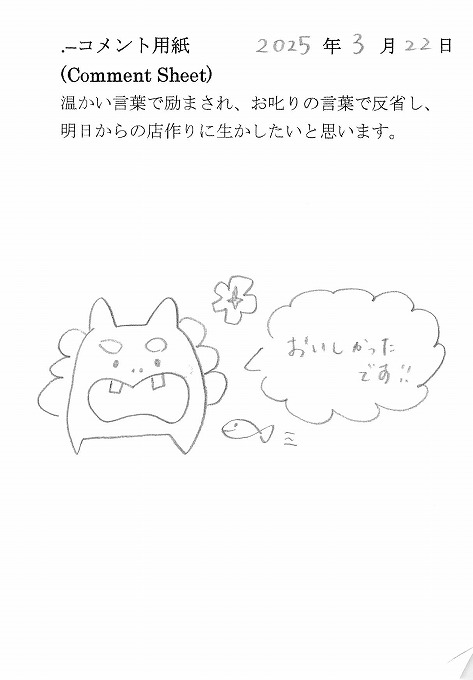 .–コメント用紙 2025 年 3 月 22 日
(Comment Sheet)
温かい言葉で励まされ、お叱りの言葉で反省し、
明日からの店作りに生かしたいと思います。
おいしかった
です!!